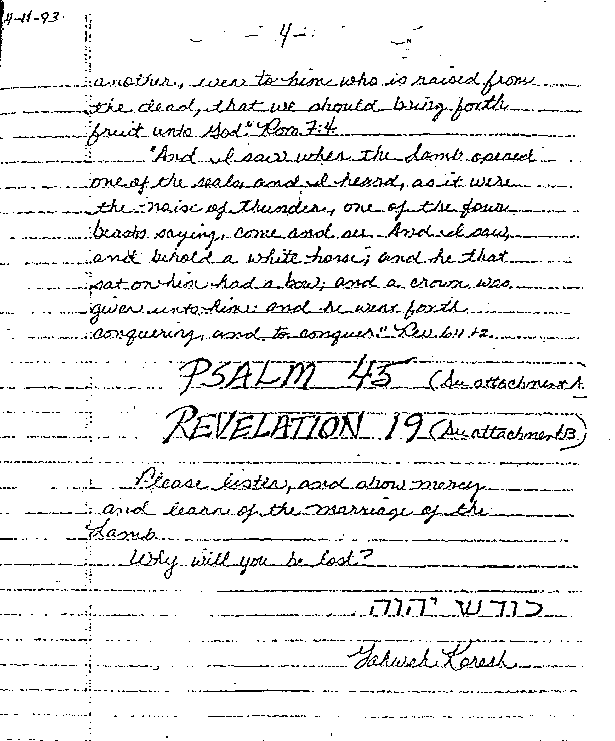 4-11-93
- 4 -
another, even to him who is raised from
the dead, that we should bring forth
fruit unto God." Rom. 7:4
"And I saw when the Lamb opened
one of the seals, and I heard, as it were
the noise of thunder, one of the four
beasts saying, come and see. And I saw,
and behold a white horse; and he that
sat on him had a bow; and a crown was
given unto him: and he went forth
conquering, and to conquer." Rev. 6:1+2
PSALM 45 (See attachment A
REVELATION 19 (See attachment B)
Please listen, and show mercy
and learn of the marriage of the
Lamb.
Why will you be lost?
כורש יהוה
Yahweh Koresh